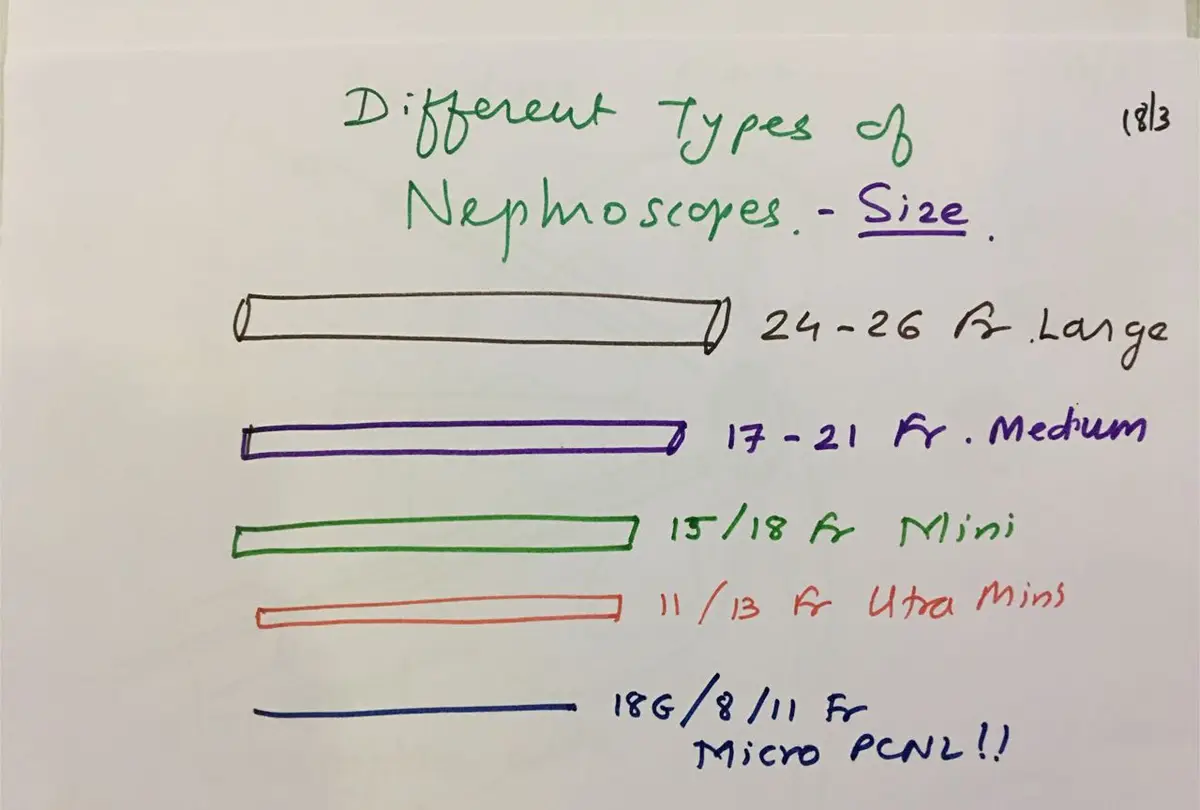 Different Types of
18/3
Nephroscopes. - Size.
24 - 26 Fr. Large
17 - 21 Fr. Medium
15/18 Fr Mini
11/13 Fr Utra Mins
18G/8/11 Fr
Micro PCNL!!